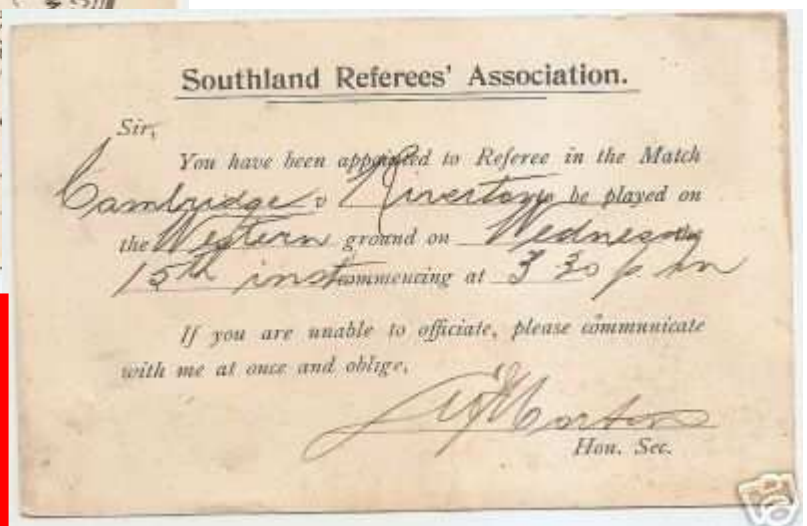 Southland Referees' Association.
Sir,
You have been appointed to Referee in the Match
Cambridge v Riverton to be played on
the Western ground on Wednesday
15th inst commencing at 3 30 p m
If you are unable to officiate, please communicate
with me at once and oblige,
Morton
Hon. Sec.